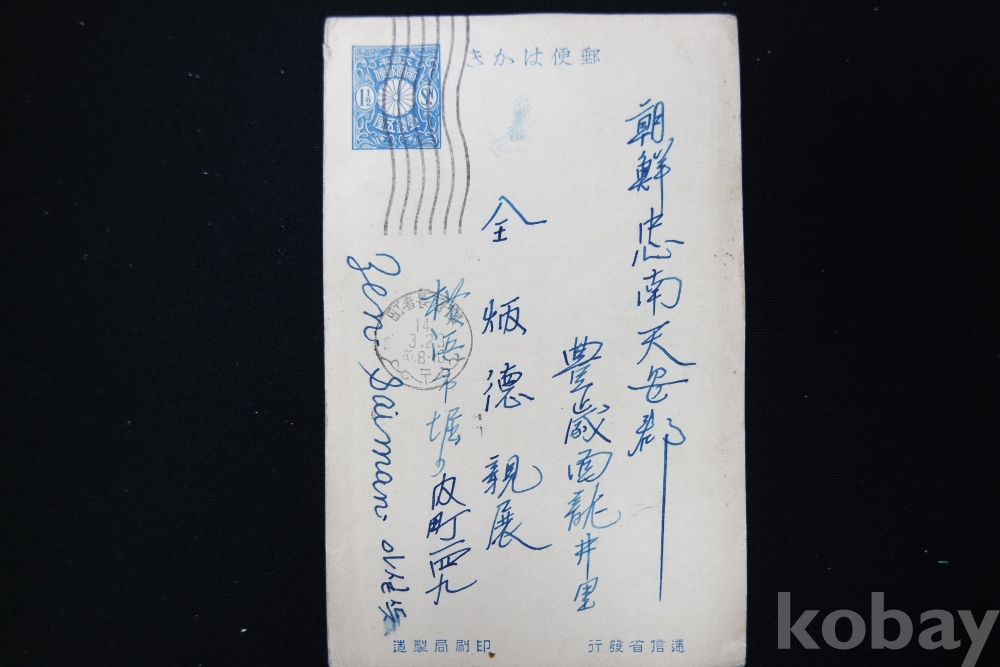 郵便はかき
朝鮮忠南天安郡
豊歳面龍井里
全炳德親展
横浜市堀の内町一四九
Zen Saiman.
大日本帝國郵便
1½ Sn
壹錢五厘
14
3.23
遞信省發行
印刷局製造
kobay